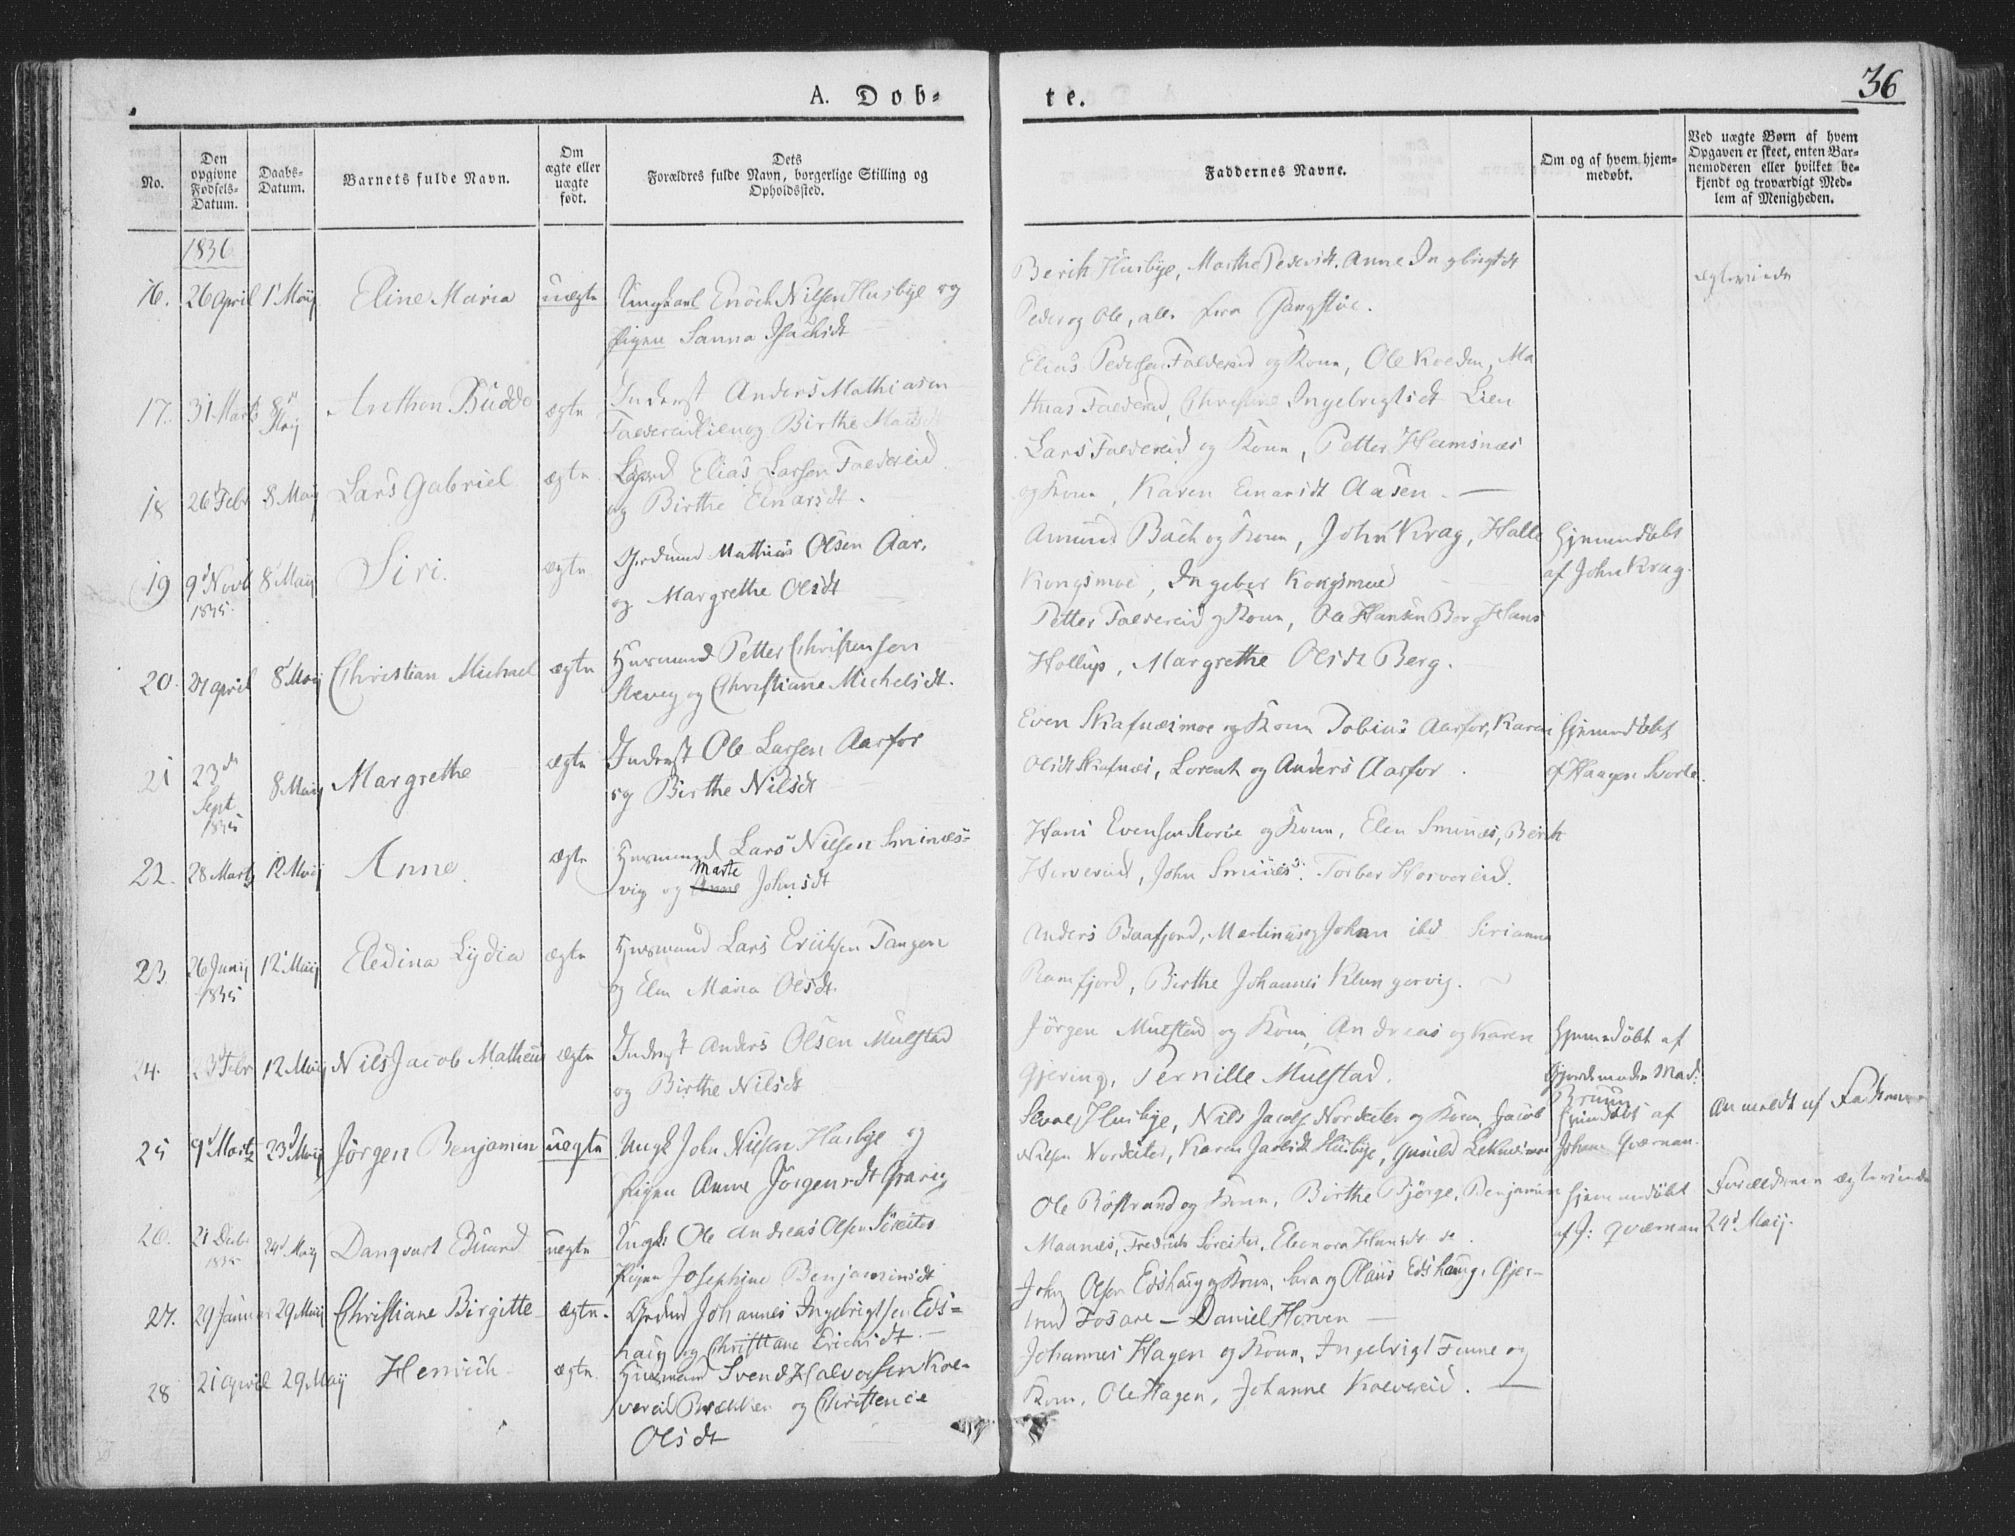 A. Dob-
te.
36
No.
Den opgivne Fødsels-Datum.
Daabs-Datum.
Barnets fulde Navn.
Om ægte eller uægte født.
Dets Forældres fulde Navn, borgerlige Stilling og Opholdssted.
Faddernes Navne.
Om og af hvem hjemmedøbt.
Ved uægte Børn af hvem Opgaven er skeet, enten Barnemoderen eller hvilket bekjendt og troværdigt Medlem af Menigheden.
1836
16. 26 April 1 Maij Eline Maria uægte Ungkarl Enoch Nilsen Husbye og
Pigen Sanna Isachsdt
Berith Husbye, Marthe Pedersdt. Anne Ingebrigtdt
Peder og Ole, alle fra
17. 31 Marts 8 Maij Anthon Budde ægte Inderst Anders Mathiasen
og Birthe
Elias Pedersen Foldereid og Kone, Ole Kolden, Ma
thias Foldereid, Christine Ingebrigtsdt Lien
18 26 Febr 8 Maij Lars Gabriel ægte Elias Larsen Foldereid
og Birthe Einarsdt.
Lars Foldereid og Kone, Petter Heimsnæs
og Kone, Karen Einarsdt Aasen.
19 9 Novb 1835. 8 Maij Siri. ægte Grdmd Mathias Olsen Aar.
og Margrethe Olsdt
Amund Bach og Kone, John Krag, Halle
Kongsmoe, Ingebor Kongsmoe
Hjemmedøbt
af John Krag.
20. 21 April 8 Maij Christian Michael ægte Husmand Petter Christensen
og Christiane Michelsdt.
Petter Foldereid og Kone, Ole Hansen Berg Hans
Hollup, Margrethe Olsdt Berg.
21 23de Sept 1835 8 Maij Margrethe ægte Inderst Ole Larsen Aarfor
og Birthe Nilsdt
Even Skafnæsmoe og Kone Tobias Aarfor, Karen
Olsdt Skafnæs, Lorent og Anders Aarfor.
Hjemmedøbt
af Haagen
22. 28 Marts 12 Maij Anne. ægte Husmand Lars Nilsen Smines-
vig og Marte Johnsdt
Hans Evensen og Kone, Elen Smines, Berith
Horvereid, John Smines. Torber Horvereid.
23. 26 Junij 1835 12 Maij Eledina Lydia ægte Husmand Lars Erichsen Tangen
og Elen Maria Olsdt.
Anders Baafjord, Martinus og Johan ibd Sirianna
Ramfjord, Birthe Johannes Klungervig.
24. 23 Febr 12 Maij Nils Jacob Matheus ægte Inderst Anders Olsen Mulstad
og Birthe Nilsdt
Jörgen Mulstad og Kone, Andreas og Karen
Gjering, Pernille Mulstad.
Hjemmedøbt af
Gjordemoder Mad:
Bruun
25 9 Marts 23 Maij Jörgen Benjamin uægte Ungk John Nilsen Husbye og
Pigen Anne Jörgensdt
Husbye, Nils Jacobs Nordeiter og Kone, Jacob
Nilsen Nordeiter, Karen Husbye, Gunild
Hjemdøbt af
Johan Qværnan.
Anmeldt af Faderen
26. 21 Decbr 1835 24 Maij Danqvart Eduard uægte Ungk: Ole Andreas Olsen Söreiter
Pigen Josephine Benjaminsdt
Ole og Kone, Birthe Bjørge, Benjamin
Maanes, Fredrik Söreiter, Eleonora Hansdt
Hjemmedøbt
af J: Qværnan
Forældrene ægteviede
24d Maij.
27. 29 Januar 29 Maij Christiane Birgitte ægte. Grdmd Johannes Ingebrigtsen Eds-
haug og Christiane Erichsdt.
John Olsen Edshaug og Kone, Sara og Olaus Edshaug, Gjer-
trud Fosaae - Daniel Horven
28 21 April 29 Maij Henrich ægte Husmand Svend Halvorsen Kol-
vereid og Christence
Olsdt
Johannes Hagen og Kone, Ingebrigt Finne og
Kone, Ole Hagen, Johanne Kolvereid.